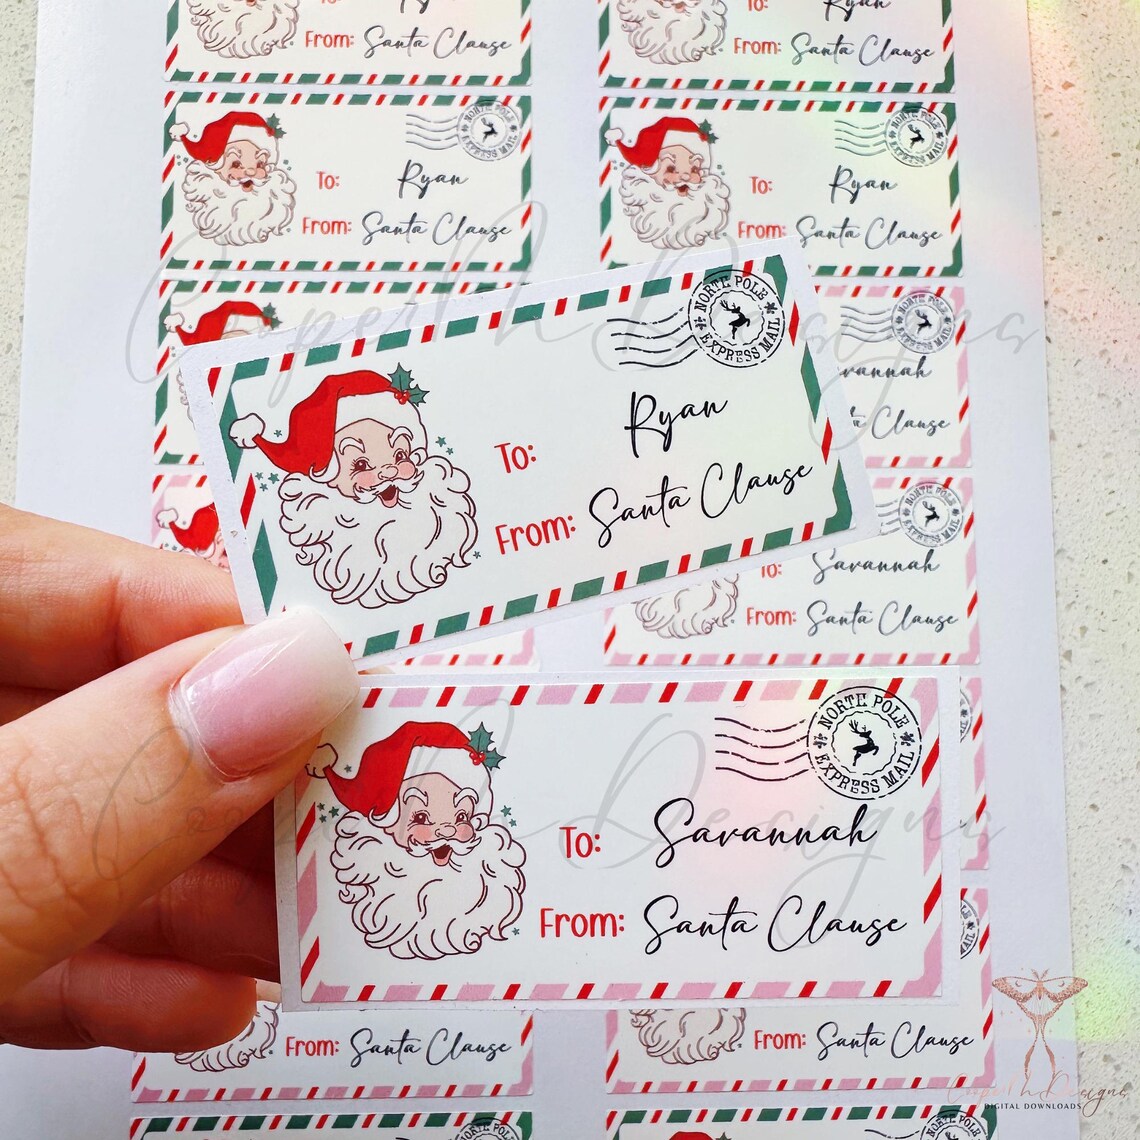 To: Ryan
From: Santa Clause
To: Ryan
From: Santa Clause
NORTE POLE
EXPRESS MAIL
To: Ryan
From: Santa Clause
NORTE POLE
EXPRESS MAIL
To: Ryan
From: Santa Clause
NORTE POLE
EXPRESS MAIL
To: Ryan
From: Santa Clause
vannah
Clause
To: Savannah
From: Santa Clause
NORTE POLE
EXPRESS MAIL
To: Savannah
From: Santa Clause
From: Santa Clause
From: Santa Clause
NORTE POLE
CooperLN Designs
DIGITAL DOWNLOADS